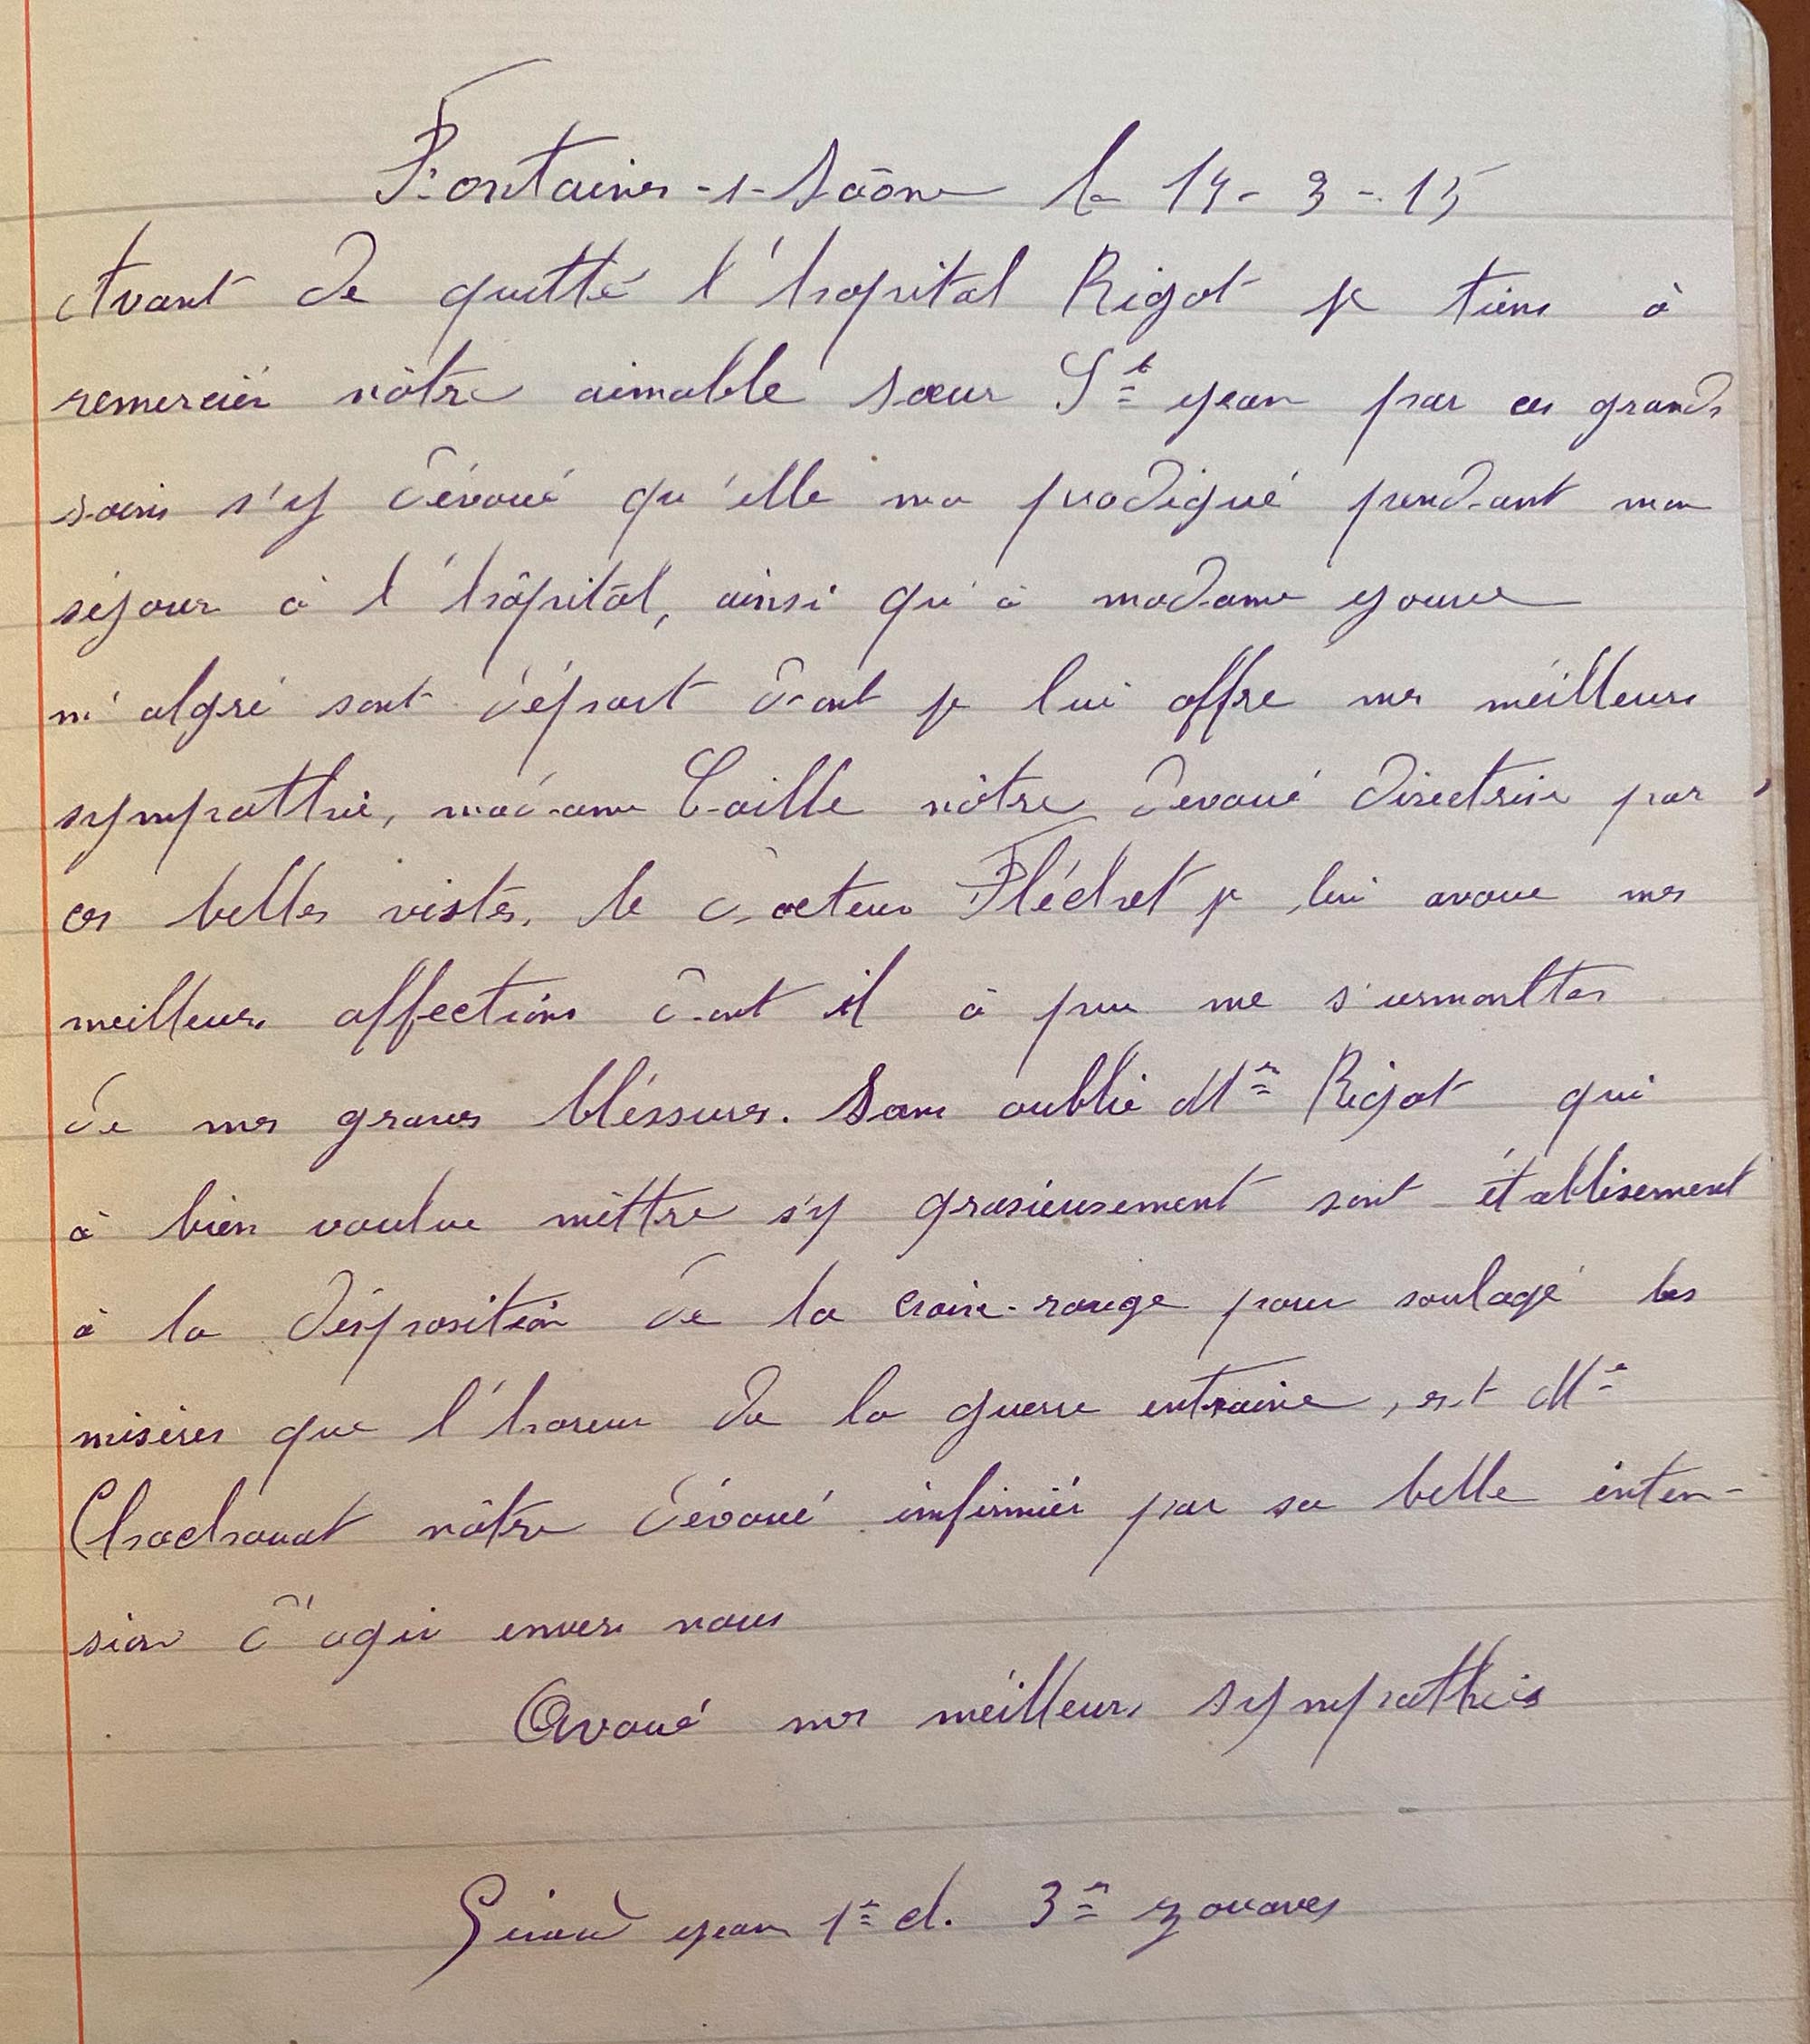 Fontaines-s-Saône le 14-3-15
Avant de quitté l'hopital Rigot je tiens à
remerciér nôtre aimable sœur St jean par ces grands
soins s'y dévoué qu'elle ma prodigué pendant mon
séjour à l'hôpitâl, ainsi qu'à madame
m'algré sont départ dont je lui offre mes méilleurs
sympathie, madame Caille nôtre dévoué directrice par
ces belles vistes, le docteur Fléchet je lui avoue mes
meilleurs affections dont il à pue me s'urmonlter
de mes graves bléssures. Sans oublié Mr Rigot qui
à bien voulue mèttre s'y grasieusement sont établisement
à la désposition de la croix-rouge pour soulagé les
misères que l'horeur de la guerre entraine, et Mr
Chachouat nôtre dévoué infirmiér par sa belle inten-
sion d'agir envers nous
Avoué mes méilleurs sympathies
jean 1re cl. 3e zouaves